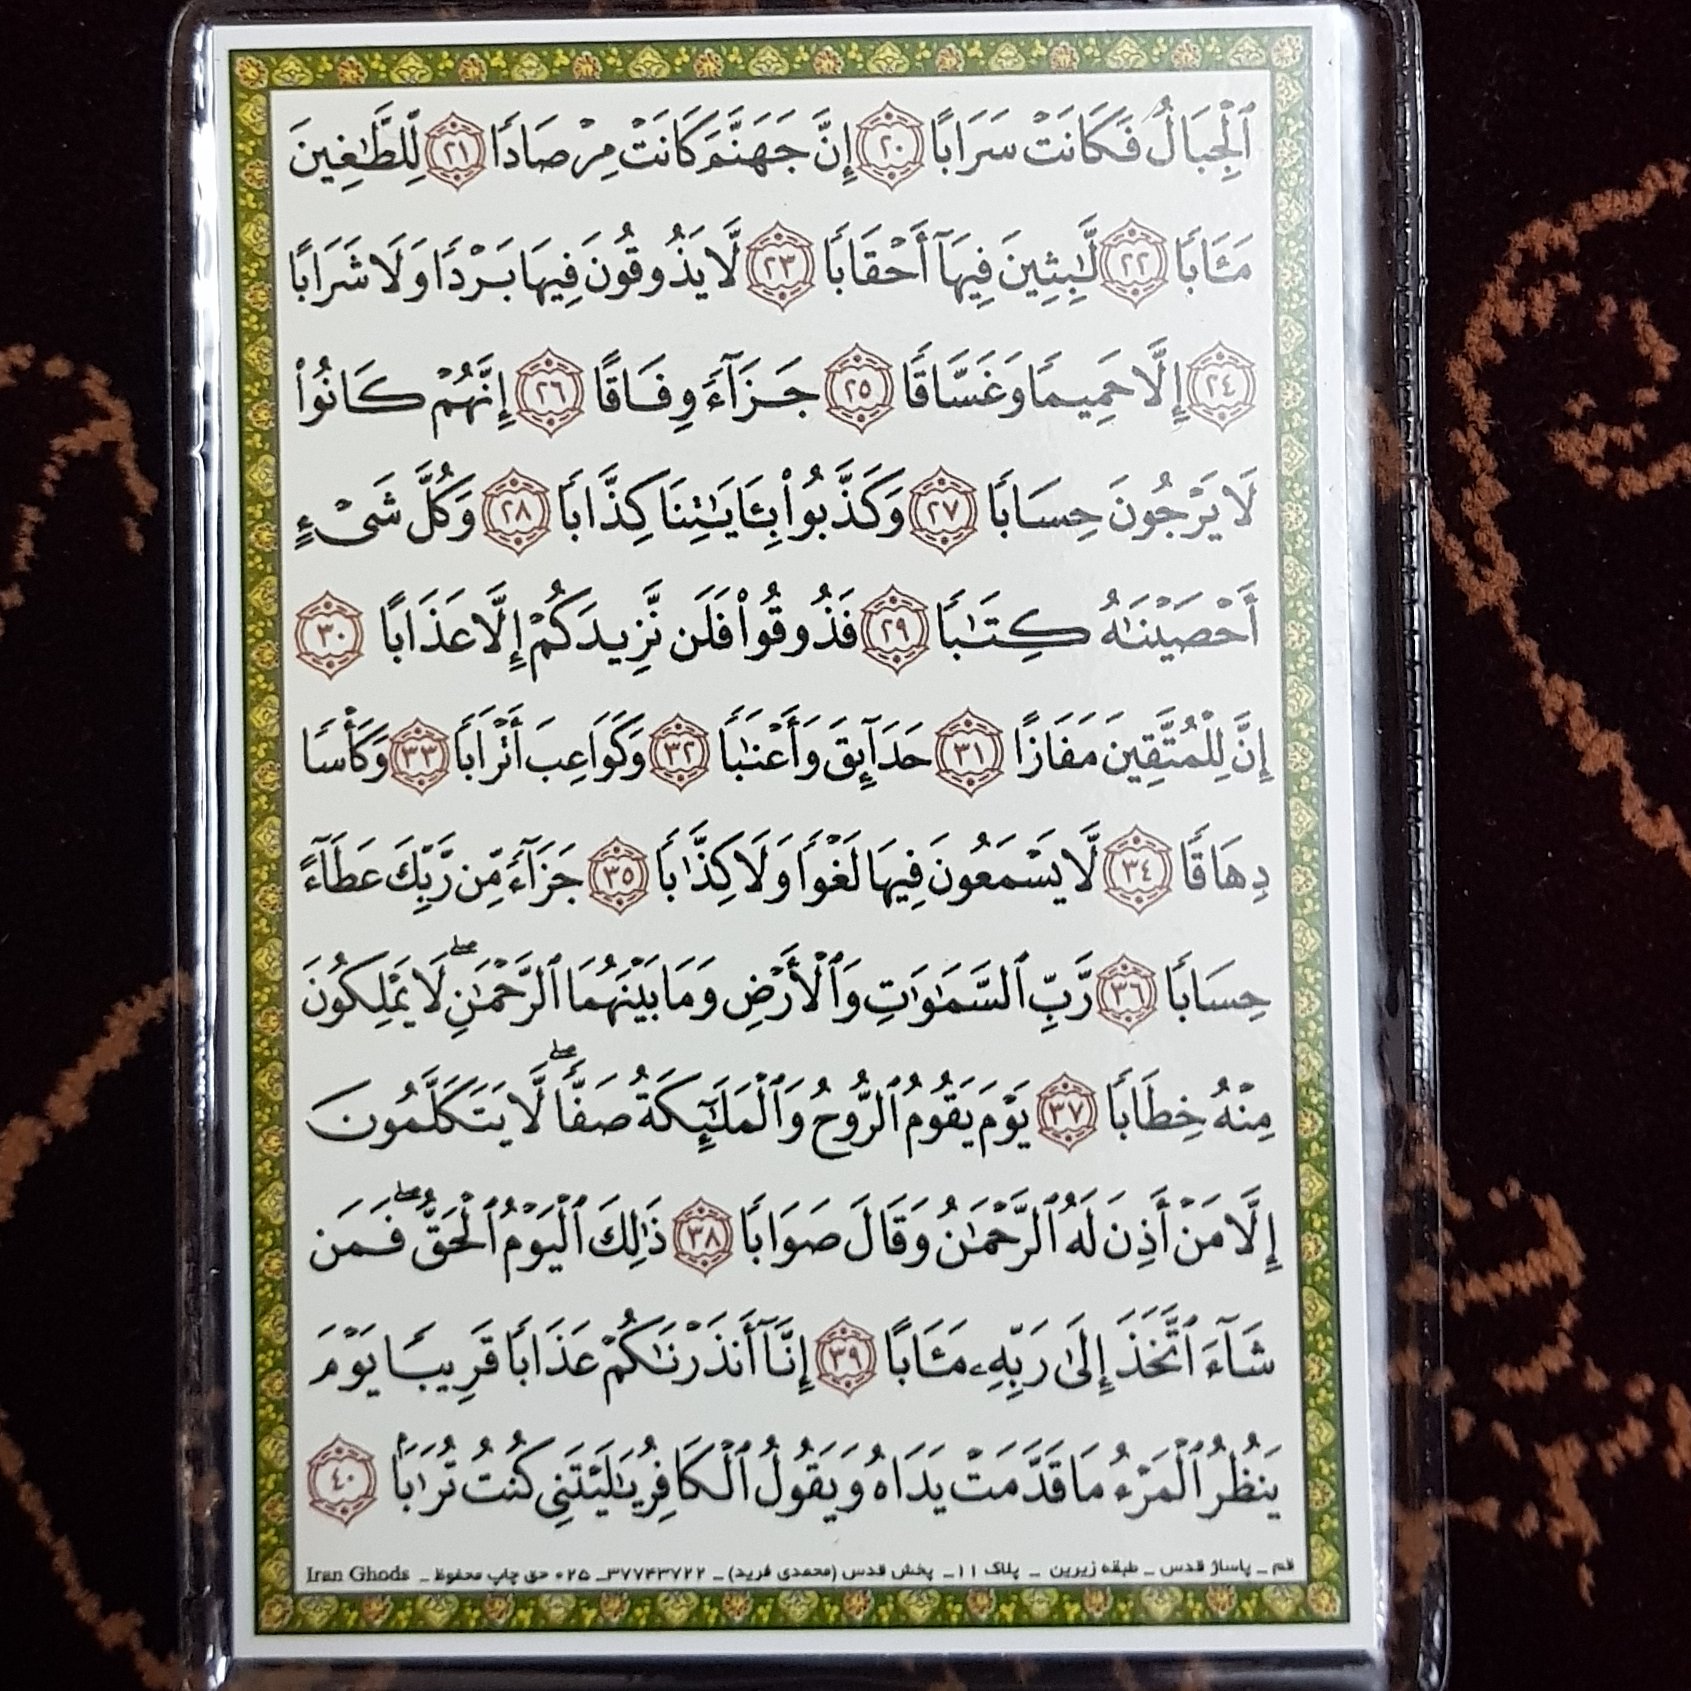 ٱلْجِبَالُ فَكَانَتْ سَرَابًا ٢٠ إِنَّ جَهَنَّمَ كَانَتْ مِرْصَادًا ٢١ لِّلطَّٰغِينَ
مَـَٔابًا ٢٢ لَّٰبِثِينَ فِيهَآ أَحْقَابًا ٢٣ لَّا يَذُوقُونَ فِيهَا بَرْدًا وَلَا شَرَابًا
٢٤ إِلَّا حَمِيمًا وَغَسَّاقًا ٢٥ جَزَآءً وِفَاقًا ٢٦ إِنَّهُمْ كَانُوا۟
لَا يَرْجُونَ حِسَابًا ٢٧ وَكَذَّبُوا۟ بِـَٔايَٰتِنَا كِذَّابًا ٢٨ وَكُلَّ شَىْءٍ
أَحْصَيْنَٰهُ كِتَٰبًا ٢٩ فَذُوقُوا۟ فَلَن نَّزِيدَكُمْ إِلَّا عَذَابًا ٣٠
إِنَّ لِلْمُتَّقِينَ مَفَازًا ٣١ حَدَآئِقَ وَأَعْنَٰبًا ٣٢ وَكَوَاعِبَ أَتْرَابًا ٣٣ وَكَأْسًا
دِهَاقًا ٣٤ لَّا يَسْمَعُونَ فِيهَا لَغْوًا وَلَا كِذَّٰبًا ٣٥ جَزَآءً مِّن رَّبِّكَ عَطَآءً
حِسَابًا ٣٦ رَّبِّ ٱلسَّمَٰوَٰتِ وَٱلْأَرْضِ وَمَا بَيْنَهُمَا ٱلرَّحْمَٰنِ ۖ لَا يَمْلِكُونَ
مِنْهُ خِطَابًا ٣٧ يَوْمَ يَقُومُ ٱلرُّوحُ وَٱلْمَلَٰٓئِكَةُ صَفًّا ۖ لَّا يَتَكَلَّمُونَ
إِلَّا مَنْ أَذِنَ لَهُ ٱلرَّحْمَٰنُ وَقَالَ صَوَابًا ٣٨ ذَٰلِكَ ٱلْيَوْمُ ٱلْحَقُّ ۖ فَمَن
شَآءَ ٱتَّخَذَ إِلَىٰ رَبِّهِۦ مَـَٔابًا ٣٩ إِنَّآ أَنذَرْنَٰكُمْ عَذَابًا قَرِيبًا يَوْمَ
يَنظُرُ ٱلْمَرْءُ مَا قَدَّمَتْ يَدَاهُ وَيَقُولُ ٱلْكَافِرُ يَٰلَيْتَنِى كُنتُ تُرَٰبًۢا ٤٠
قم _ پاساژ قدس _ طبقه زیرین _ پلاک ١١_ پخش قدس (محمدی فرید) _ ٣٧٧۴٣٧٢٢_ ٠٢۵ حق چاپ محفوظ _ Iran Ghods